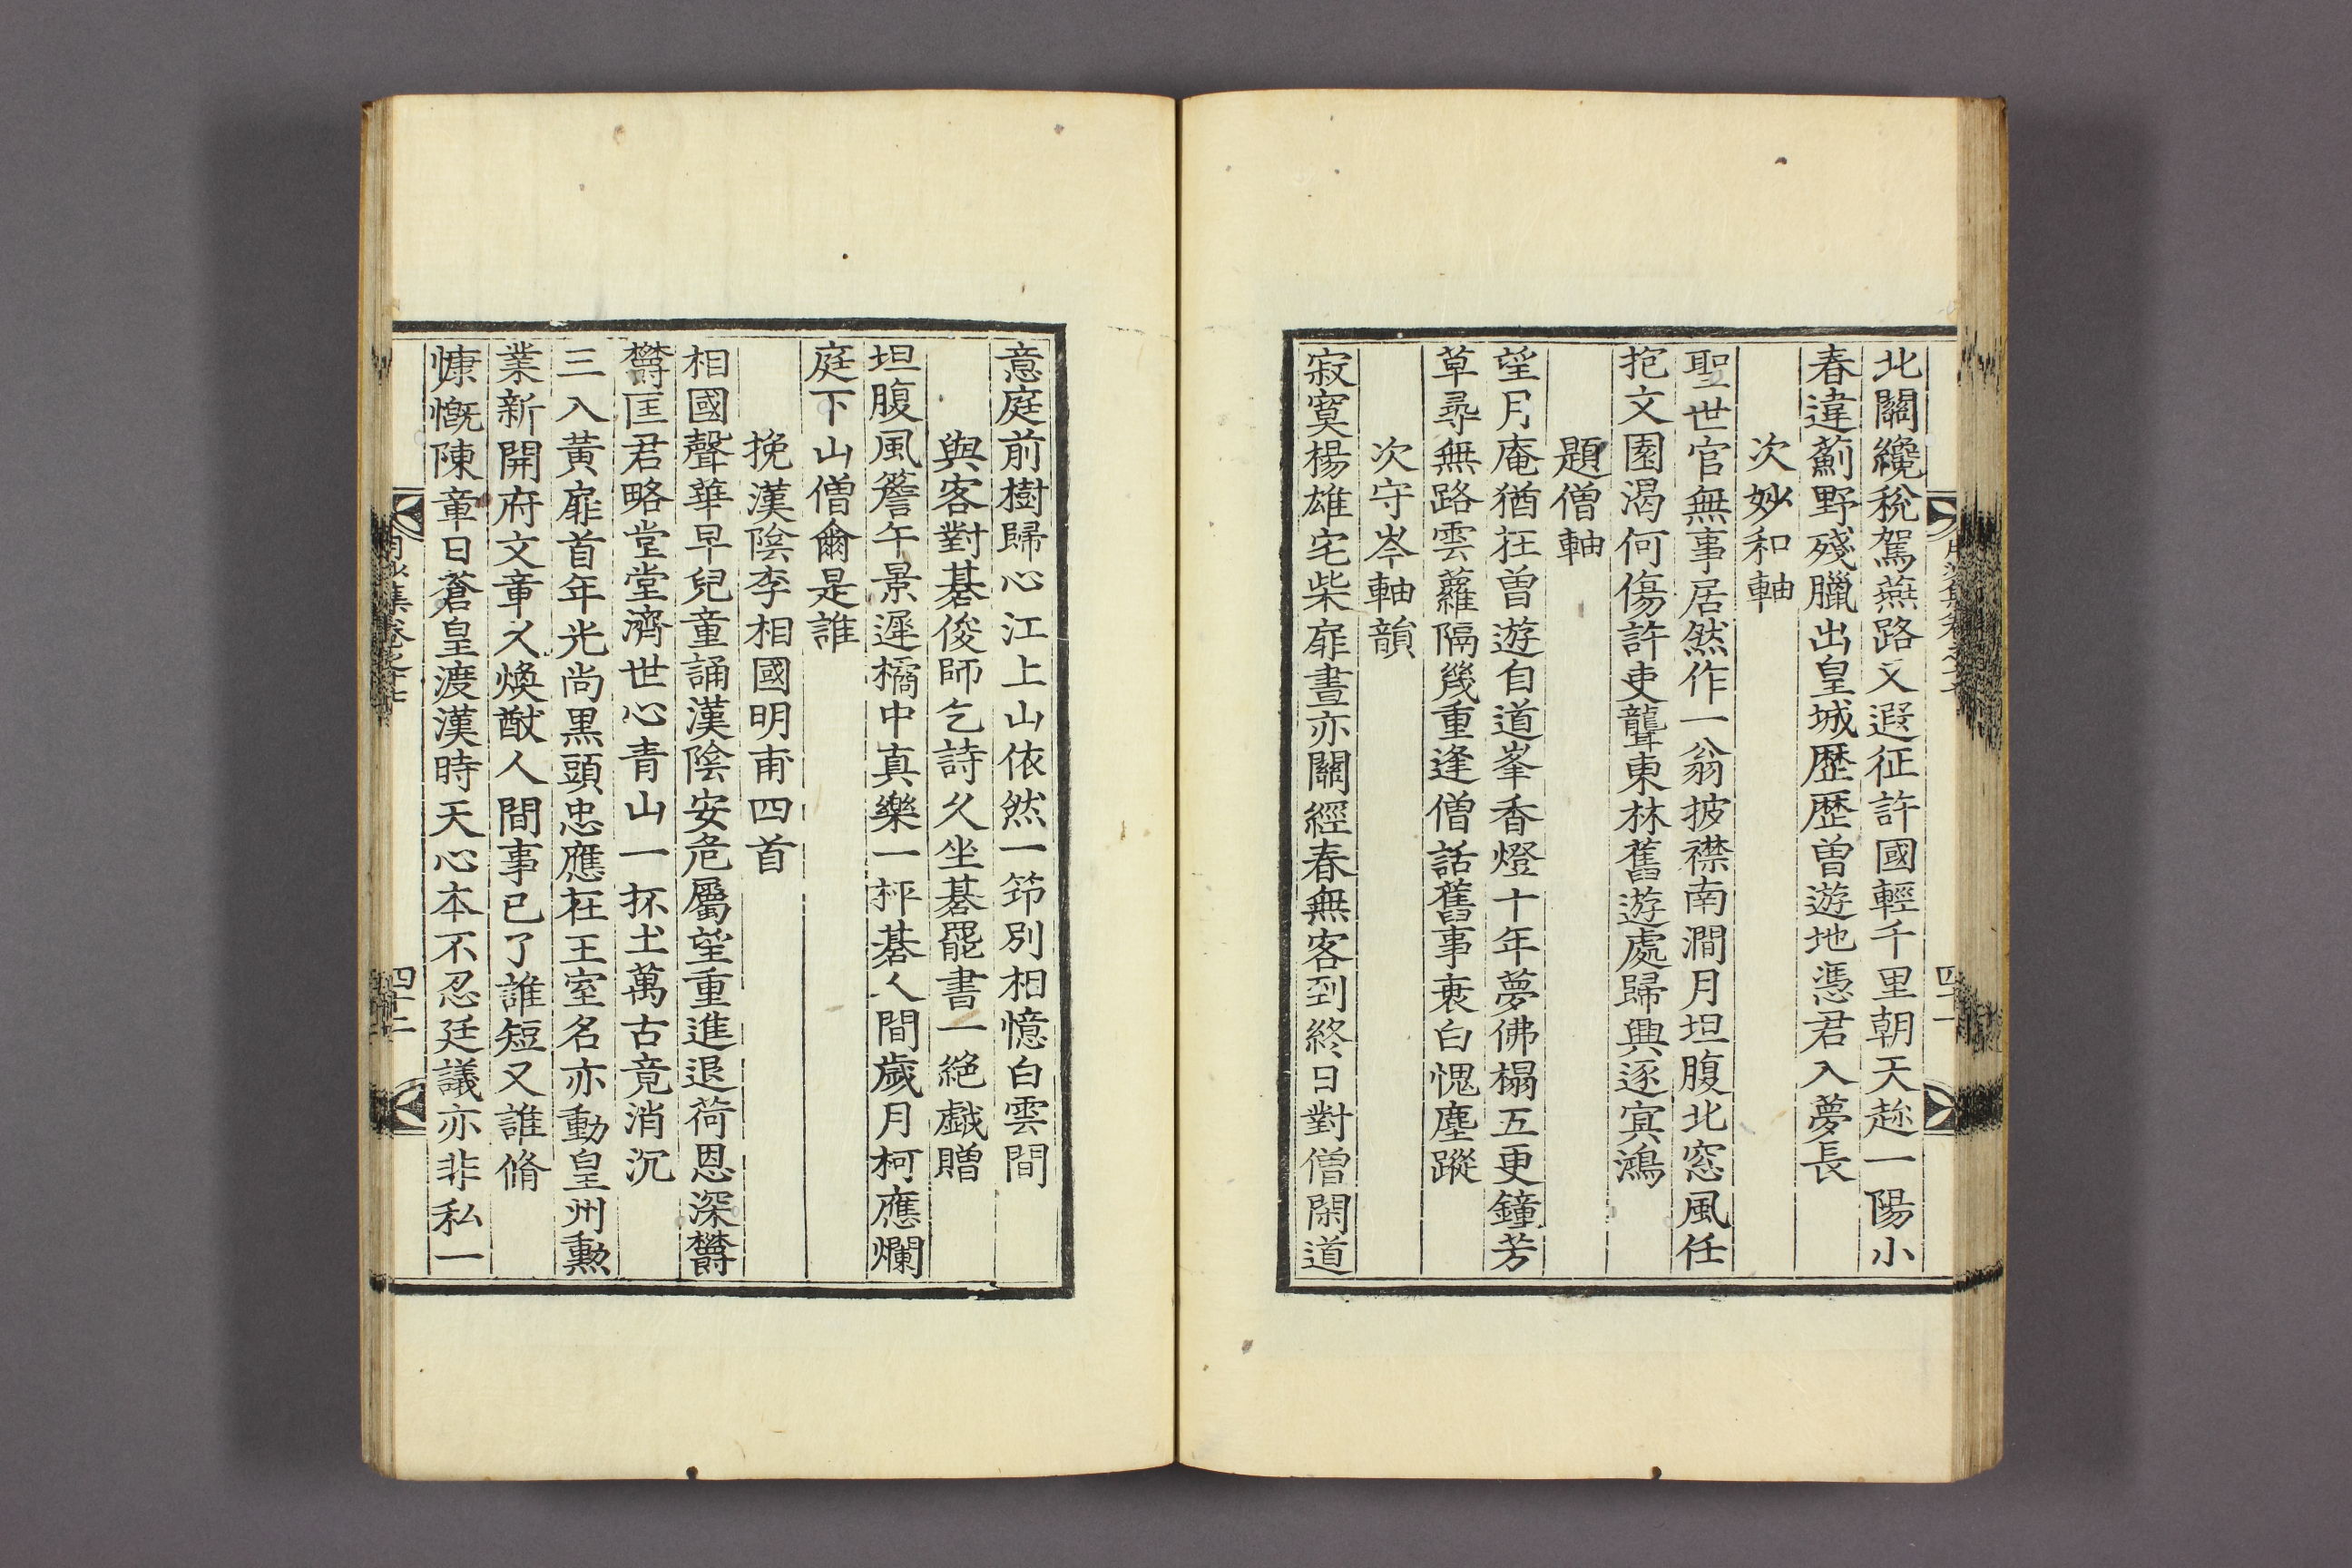 北闕纔稅駕燕路又遐征許國輕千里朝天趂一陽小
春違薊野殘臘出皇城歷歷曾遊地憑君入夢長
次妙和軸
聖世官無事居然作一翁披襟南澗月坦腹北窓風任
抱文園渴何傷許吏聾東林舊遊處歸興逐冥鴻
題僧軸
望月庵猶在曾遊自道峯香燈十年夢佛榻五更鐘芳
草尋無路雲蘿隔幾重逢僧話舊事衰白愧塵蹤
次守岑軸韻
寂寞楊雄宅柴扉晝亦關經春無客到終日對僧閑道
意庭前樹歸心江上山依然一筇別相憶白雲間
與客對碁俊師乞詩久坐碁罷書一絕戱贈
坦腹風簷午景遲橘中真樂一枰碁人間歲月柯應爛
庭下山僧爾是誰
挽漢陰李相國明甫四首
相國聲華早兒童誦漢陰安危屬望重進退荷恩深欝
欝匡君略堂堂濟世心青山一抔土萬古竟消沉
三入黃扉首年光尚黑頭忠應在王室名亦動皇州勳
業新開府文章久煥猷人間事已了誰短又誰脩
慷慨陳章日蒼皇渡漢時天心本不忍廷議亦非私一
月沙集卷之十七
四十二